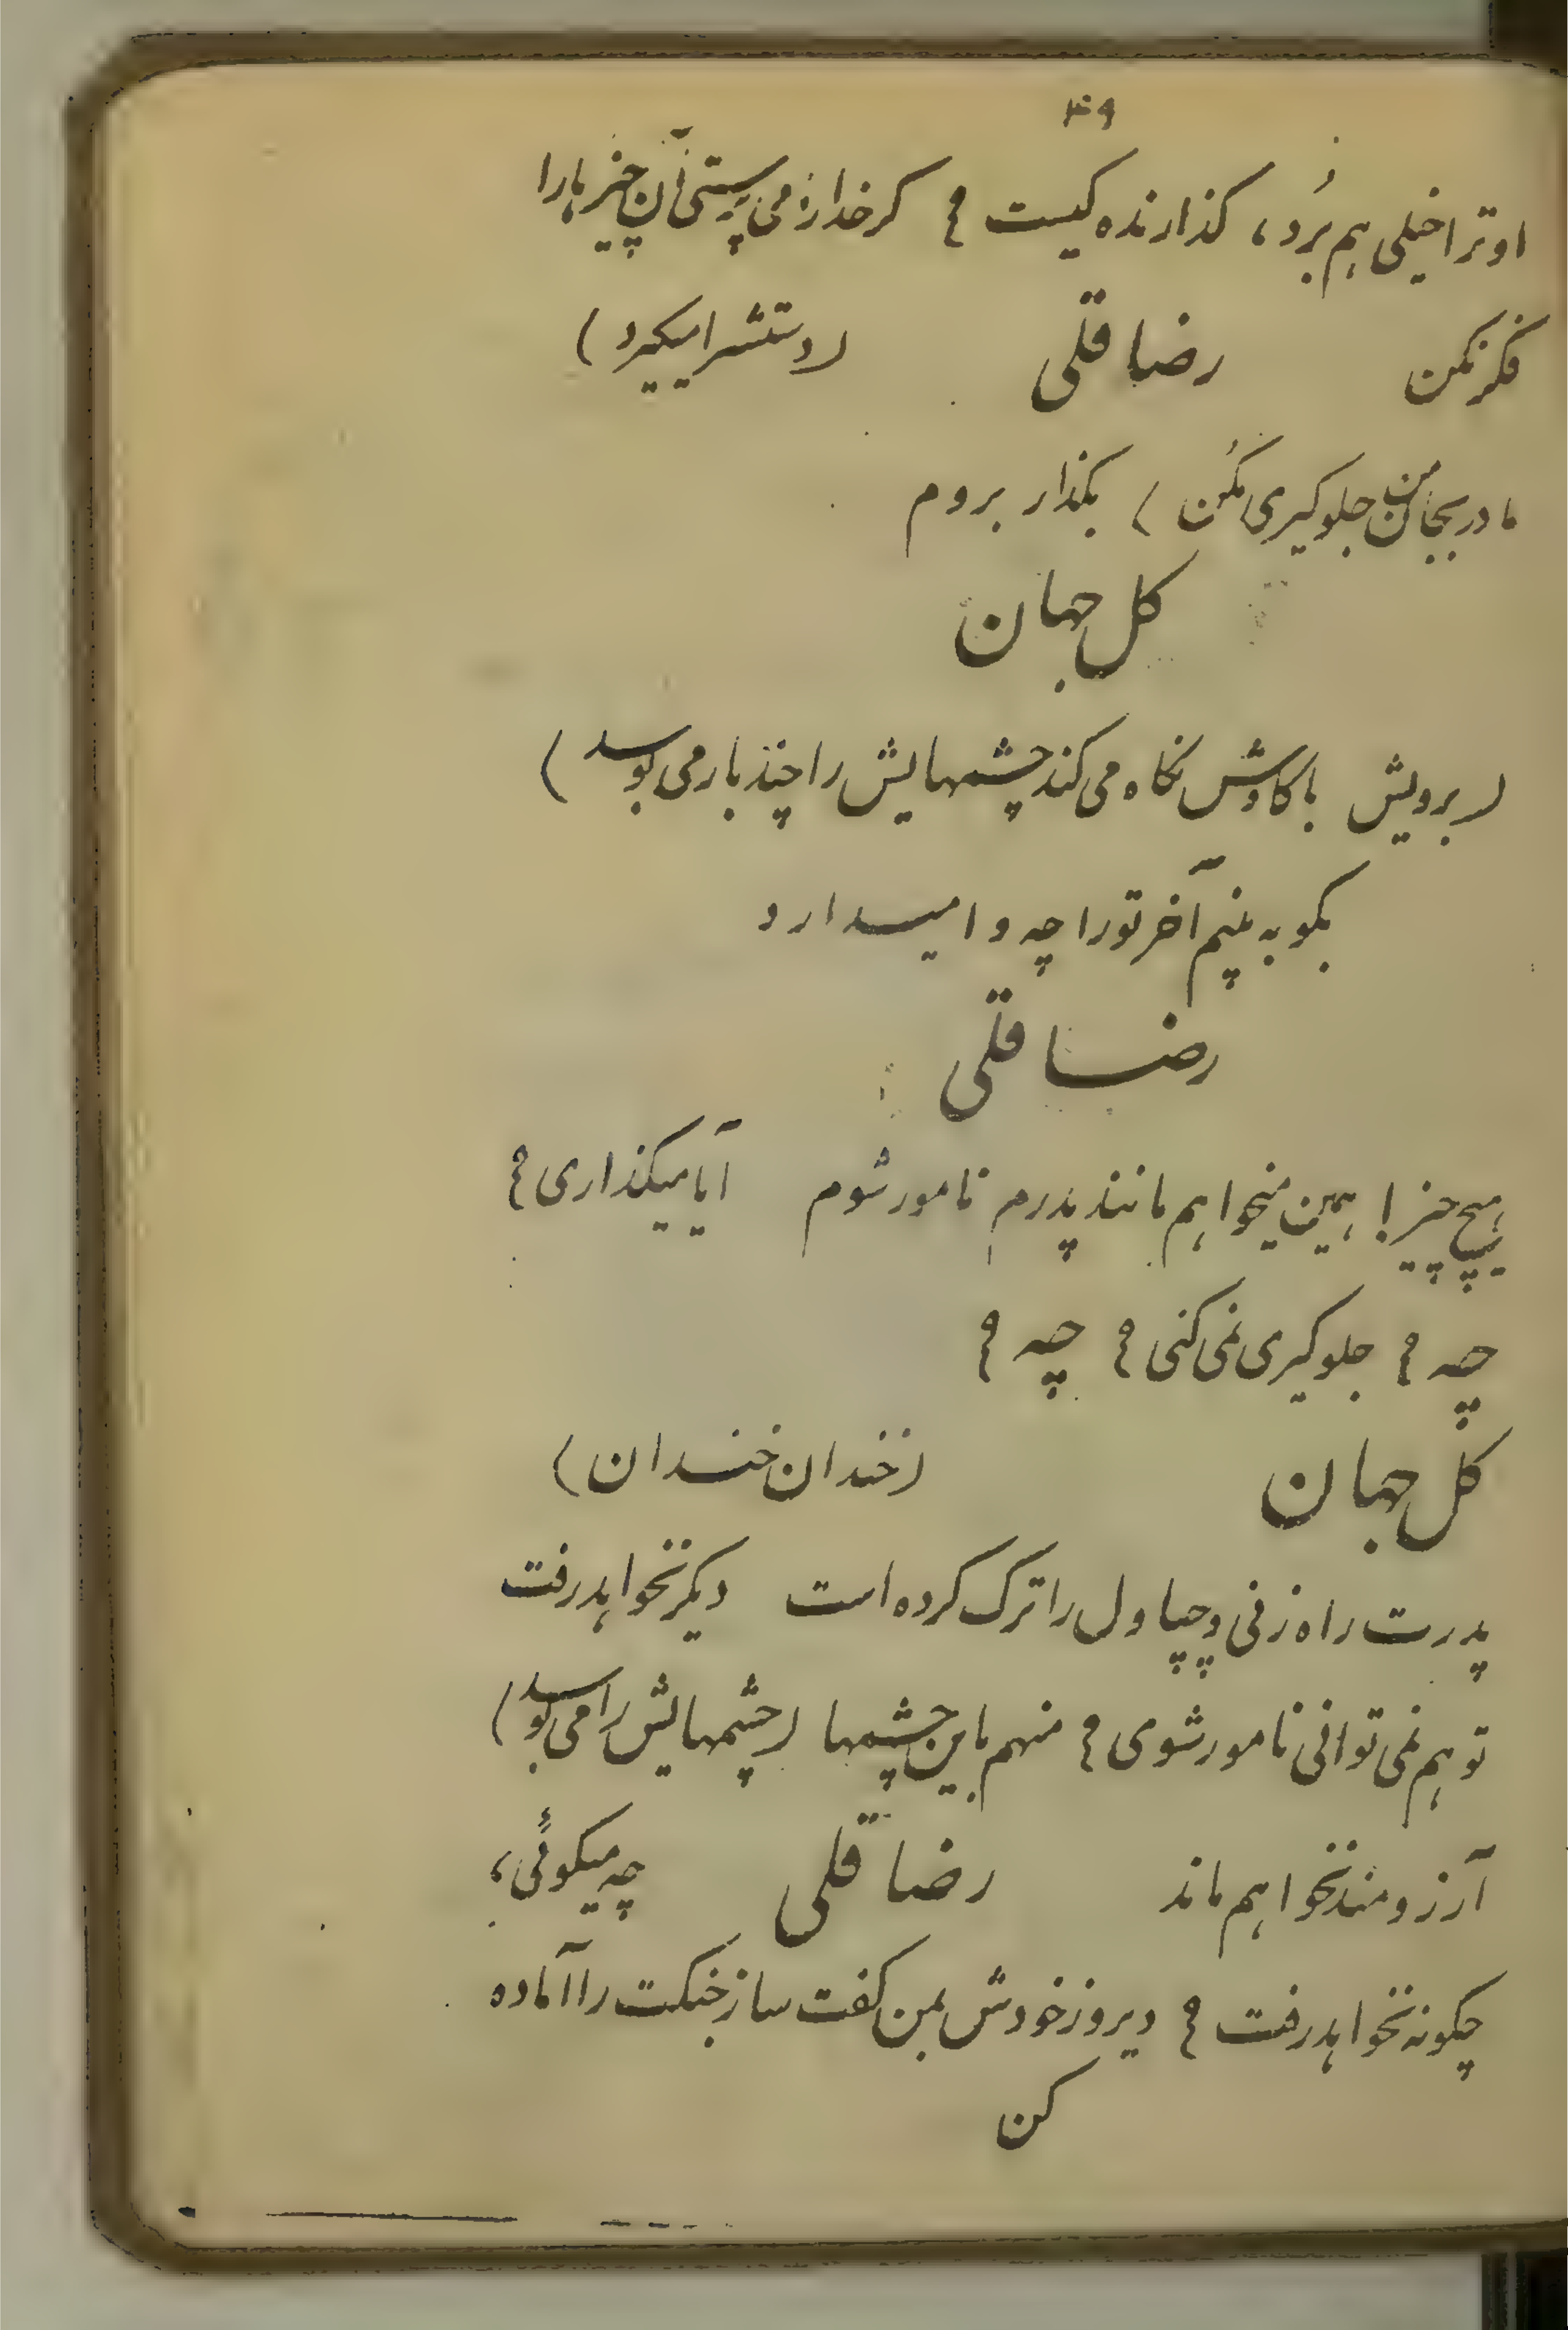 ۴۹
او ترا خیلی هم بُرد، کذارنده کیست ؟ کر خدارا می پرستی آن چیز هارا
فکر نکن رضا قلی (دستش را میکیرد)
مادر بیجا من جلوکیری مکُن ) بکذار بروم
کل جهان
(برویش با کاوش نکاه می کند چشمهایش را چند بار می بوسد)
بکو به بینم آخر تورا چه وا میدارد
رضا قلی
هیچ چیز ! همین میخواهم مانند پدرم نامور شوم آیا میکذاری ؟
چه ؟ جلوکیری نمی کنی ؟ چه ؟
کل جهان (خندان خندان)
پدرت راه زنی و چپاول را ترک کرده است دیکر نخواهد رفت
تو هم نمی توانی نامور شوی ؟ منهم باین چشمها (چشمهایش را می بوسد)
آرزومند نخواهم ماند رضا قلی چه میکوئی،
چکونه نخواهد رفت ؟ دیروز خودش بمن کفت ساز جنکت را آماده
کن